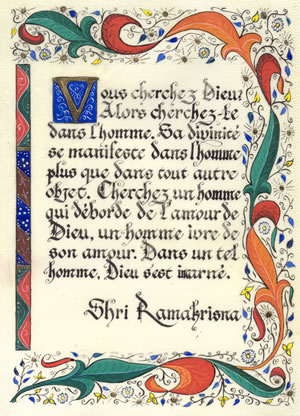 Vous cherchez Dieu?
Alors cherchez-le
dans l'homme. Sa divinité
se manifeste dans l'homme
plus que dans tout autre
objet. Cherchez un homme
qui déborde de l'amour de
Dieu, un homme ivre de
son amour. Dans un tel
homme, Dieu s'est incarné.
Shri Ramahrisna